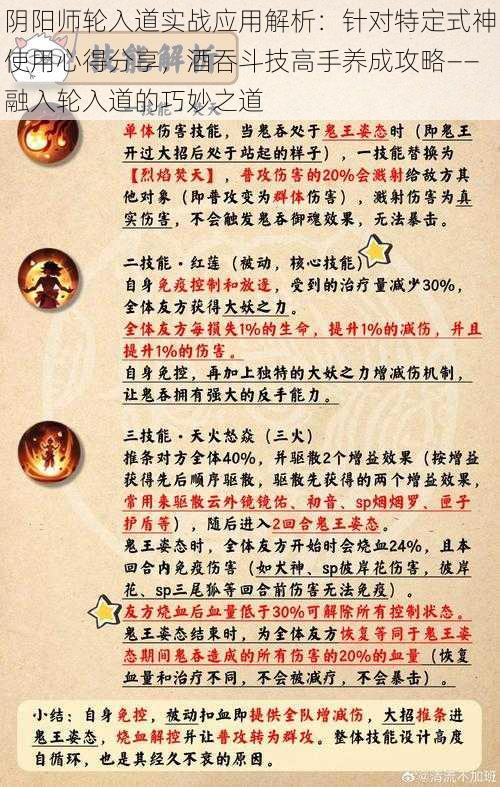 阴阳师轮入道实战应用解析：针对特定式神
使用心得分享，酒吞斗技高手养成攻略——
融入轮入道的巧妙之道
技能解析
单体伤害技能，当鬼吞处于鬼王姿态时（即鬼王
开过大招后处于站起的样子），一技能替换为
【烈焰焚天】，普攻伤害的20%会溅射给敌方其
他对象（即普攻变为群体伤害），溅射伤害为真
实伤害，不会触发鬼吞御魂效果，无法暴击。
二技能·红莲（被动，核心技能）
自身免疫控制和放逐，受到的治疗量减少30%，
全体友方获得大妖之力。
全体友方每损失1%的生命，提升1%的减伤，并且
提升1%的伤害。
自身免控，再加上独特的大妖之力增减伤机制，
让鬼吞拥有强大的反手能力。
三技能·天火怒焱（三火）
推条对方全体40%，并驱散2个增益效果（按增益
获得先后顺序驱散，驱散先获得的两个增益效果，
常用来驱散云外镜镜佑、初音、sp烟烟罗、匣子
护盾等），随后进入2回合鬼王姿态。
鬼王姿态时，全体友方开始时会烧血24%，且本
回合内免疫伤害（如犬神、sp彼岸花伤害，彼岸
花、sp三尾狐等回合前伤害无法免疫）。
友方烧血后血量低于30%可解除所有控制状态。
鬼王姿态结束时，为全体友方恢复等同于鬼王姿
态期间鬼吞造成的所有伤害的20%的血量（恢复
血量和治疗不同，不会被减疗，不会暴击）。
小结：自身免控，被动扣血即提供全队增减伤，大招推条进
鬼王姿态，烧血解控并让普攻转为群攻。整体技能设计高度
自循环，也是其经久不衰的原因。
@清流不加班